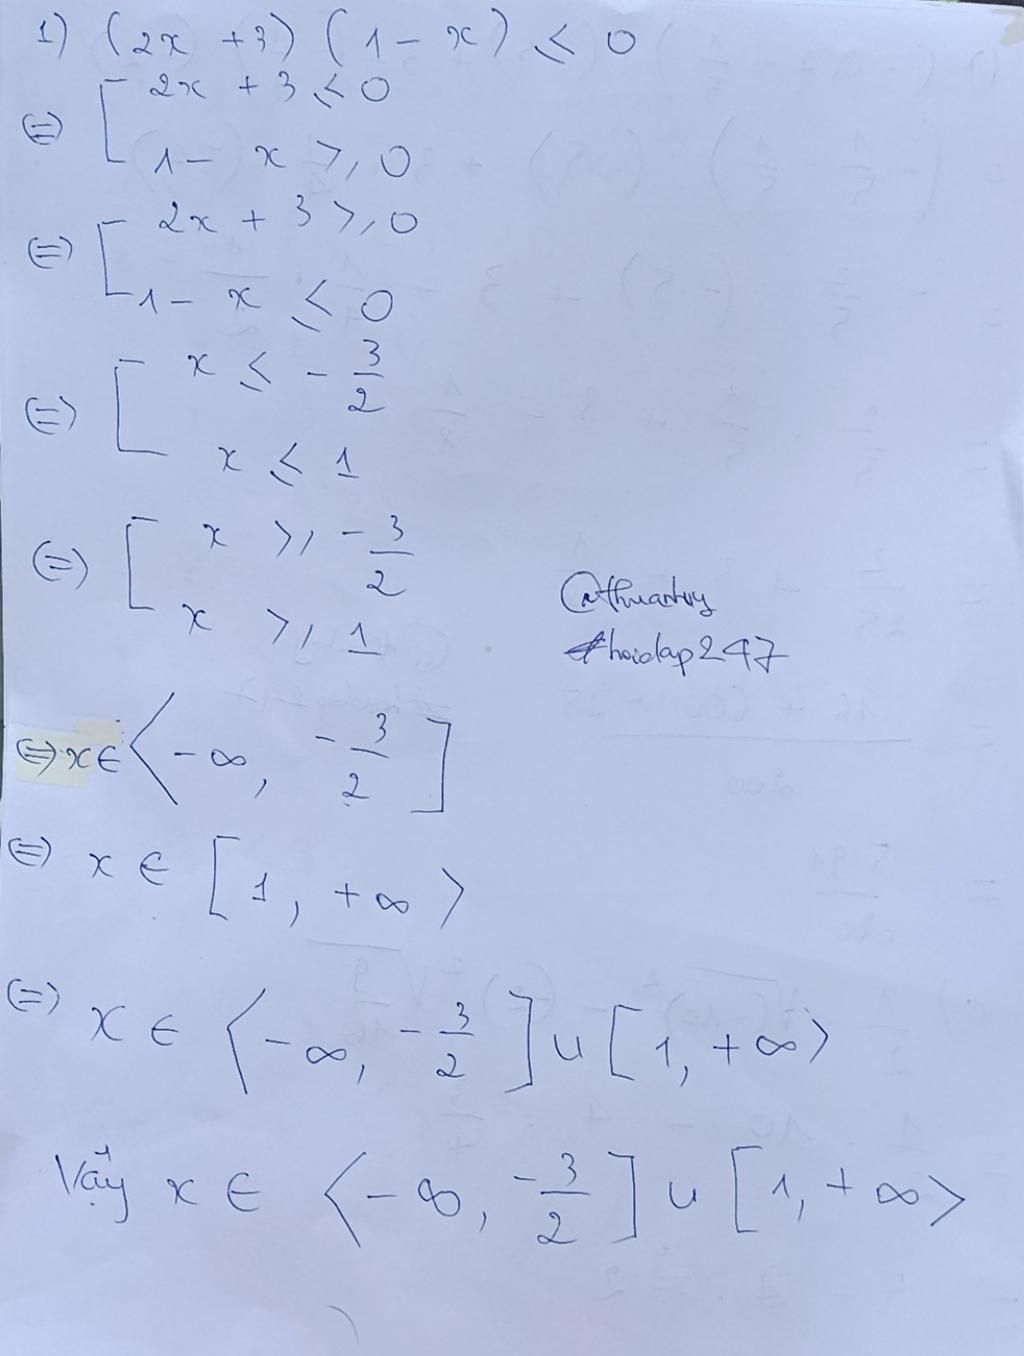 1) (2x + 3) (1 - x) ≤ 0
⇔ [ 2x + 3 ≤ 0
1 - x ≥ 0
⇔ [ 2x + 3 ≥ 0
1 - x ≤ 0
⇔ [ x ≤ - 3/2
x ≤ 1
⇔ [ x ≥ - 3/2
x ≥ 1
@thuantuy
#hoidap247
⇔ x ∈ ⟨-∞, -3/2]
⇔ x ∈ [1, +∞⟩
⇔ x ∈ ⟨-∞, -3/2] ∪ [1, +∞⟩
Vậy x ∈ ⟨-∞, -3/2] ∪ [1, +∞⟩